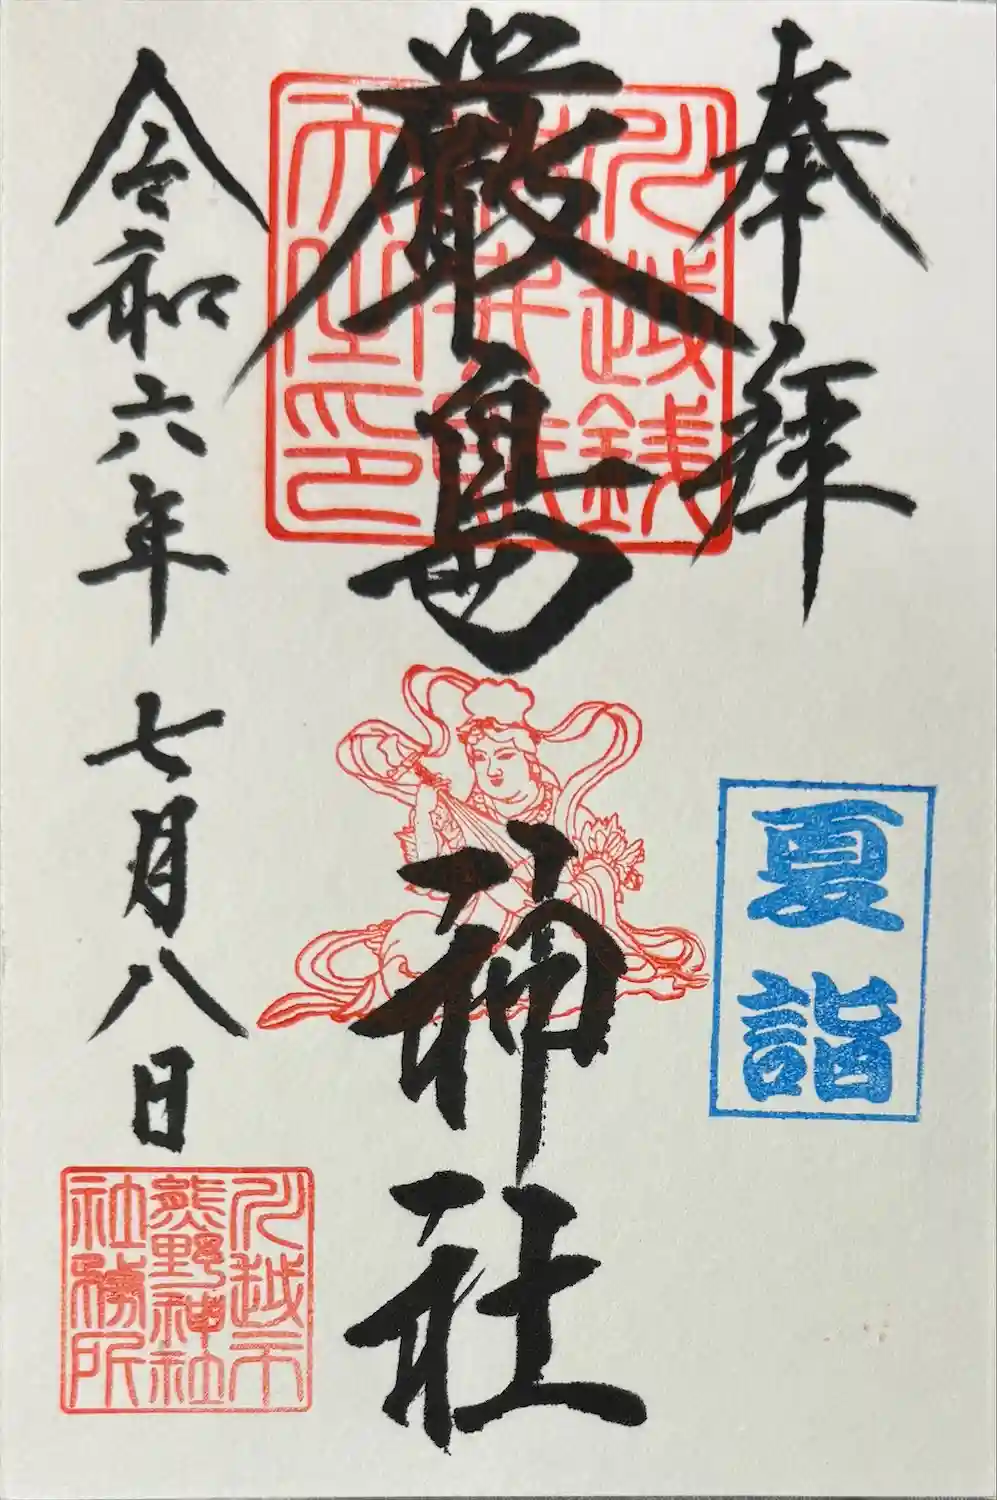 奉拝
夏詣
川越銭
洗弁財
天之印
厳島神社
令和六年七月八日
川越市
熊野神社
社務所